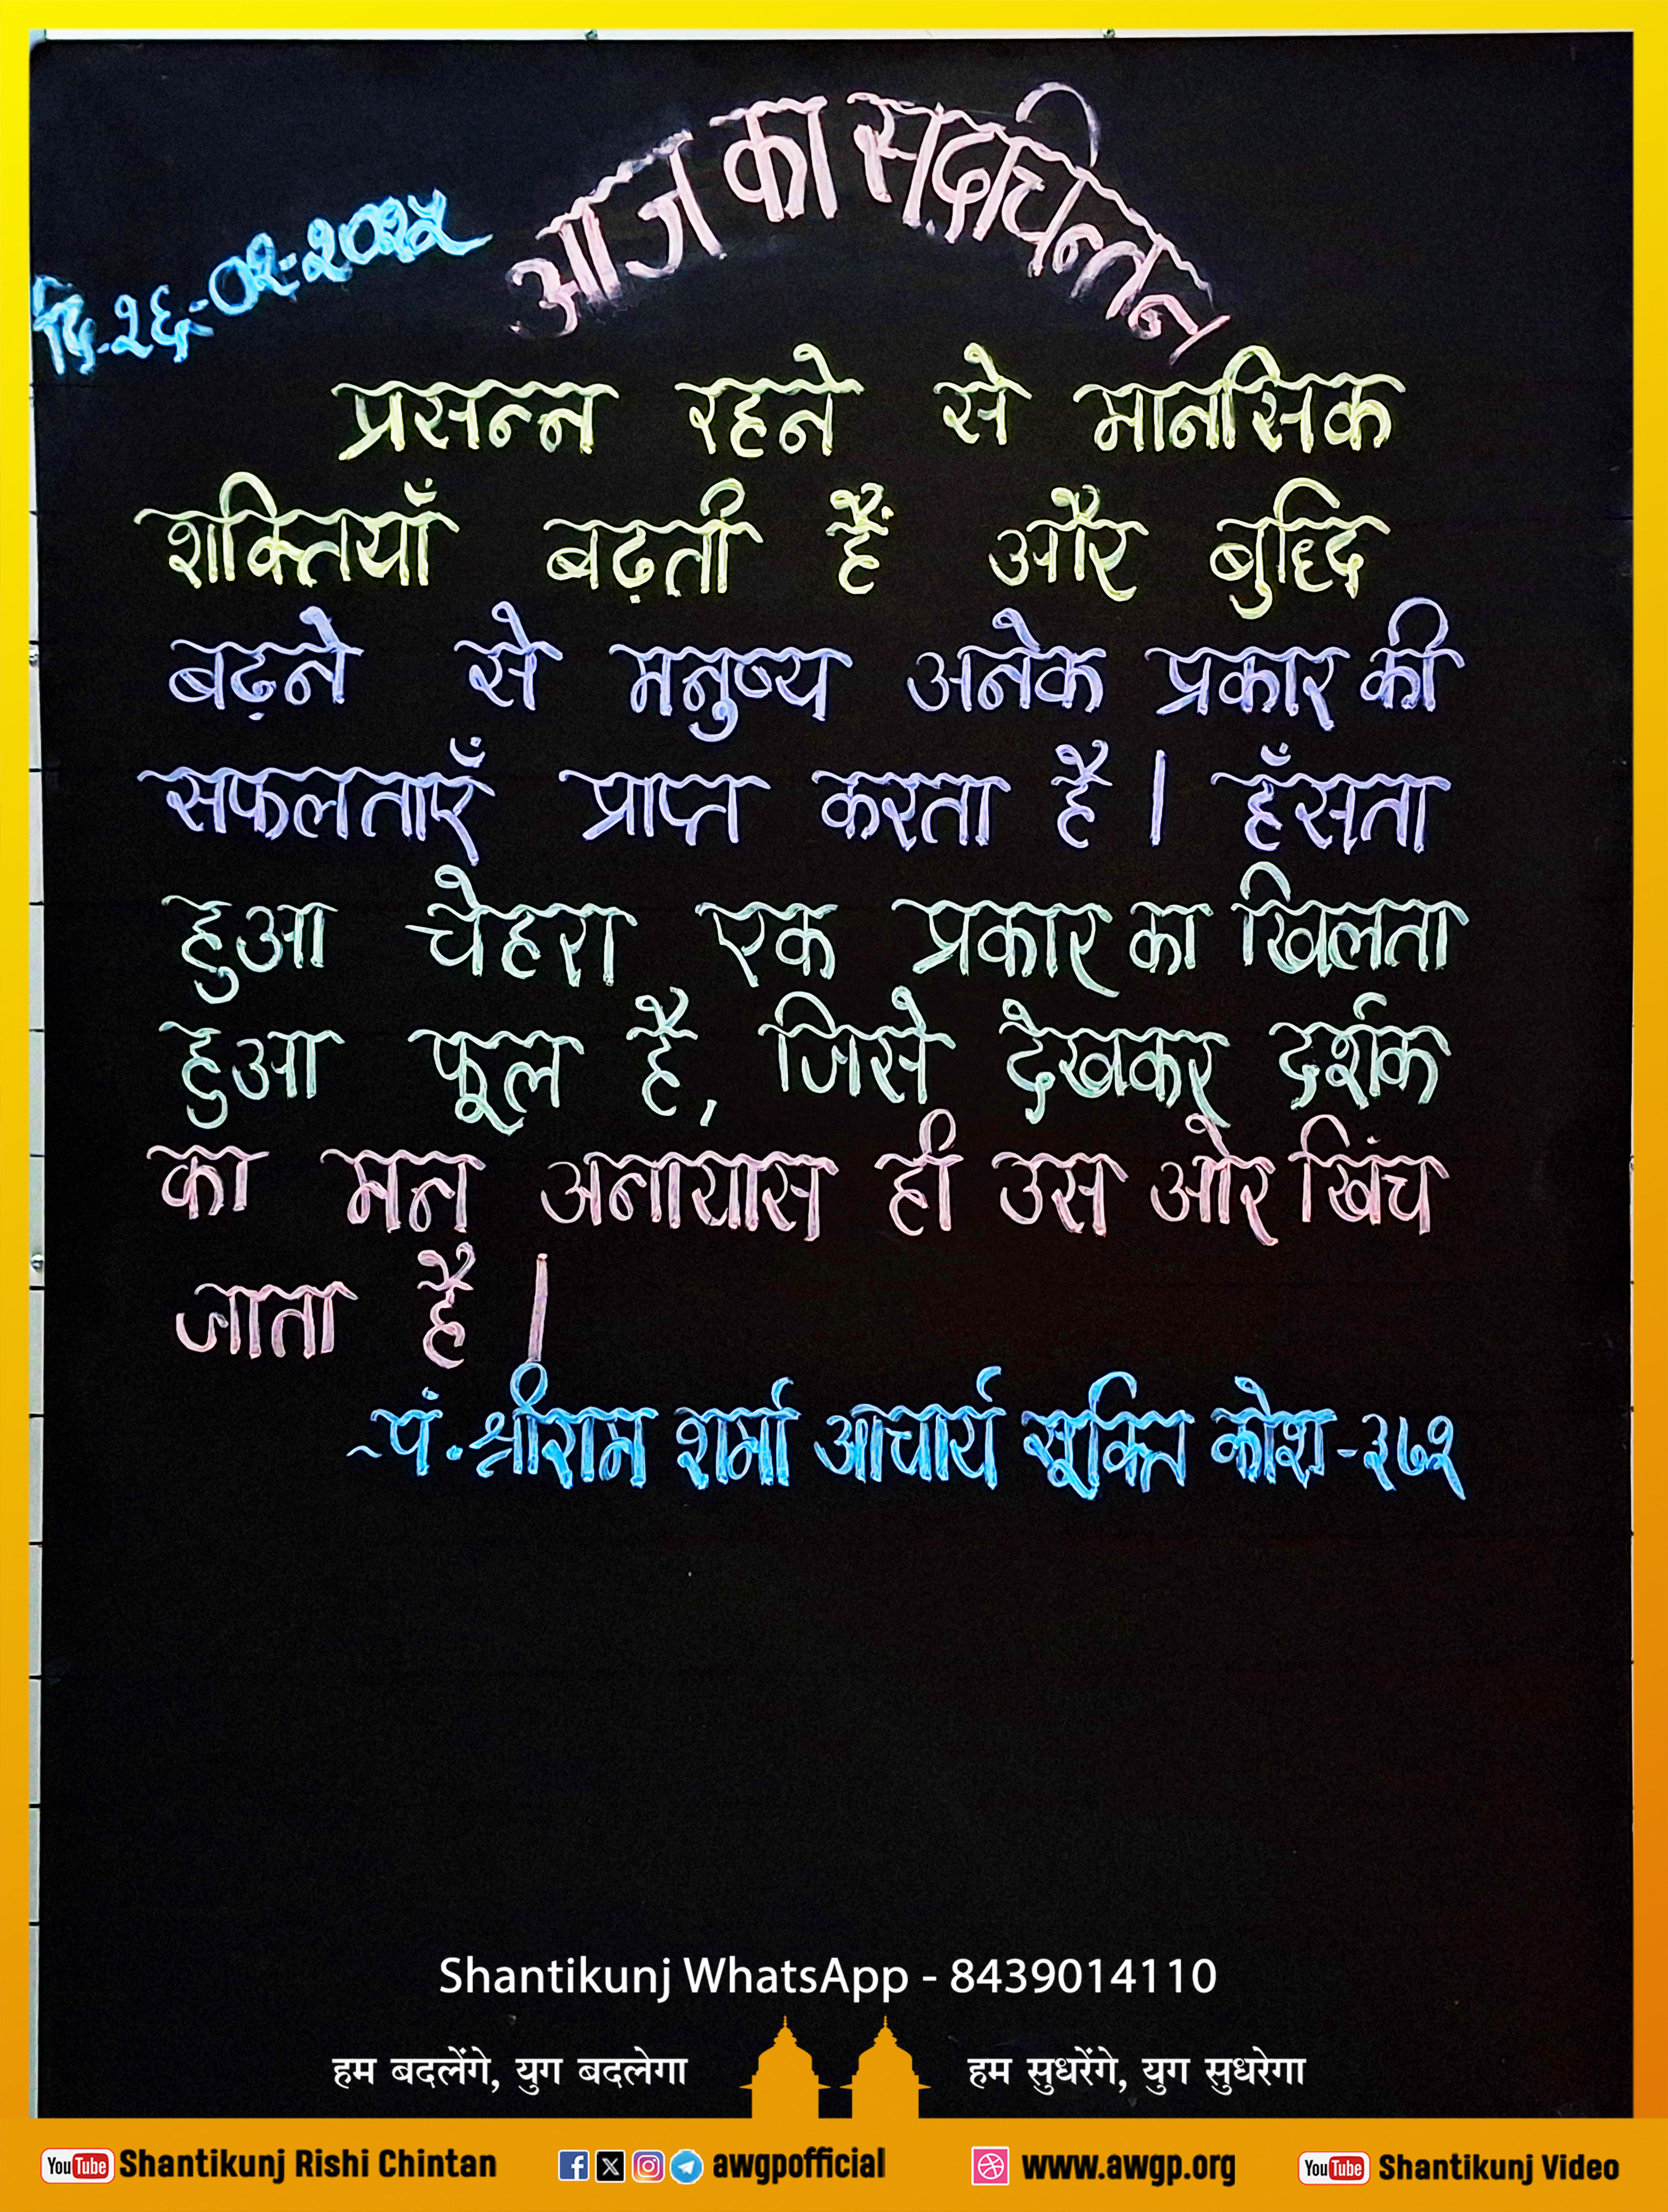 आज का सद्चिन्तन
दि.२६-०२-२०२५
प्रसन्न रहने से मानसिक
शक्तियाँ बढ़ती हैं और बुद्धि
बढ़ने से मनुष्य अनेक प्रकार की
सफलताएँ प्राप्त करता है । हँसता
हुआ चेहरा एक प्रकार का खिलता
हुआ फूल है, जिसे देखकर दर्शक
का मन अनायास ही उस ओर खिंच
जाता है ।
~पं.श्रीराम शर्मा आचार्य सूक्ति कोश-३७१
Shantikunj WhatsApp - 8439014110
हम बदलेंगे, युग बदलेगा हम सुधरेंगे, युग सुधरेगा
YouTube Shantikunj Rishi Chintan awgpofficial www.awgp.org YouTube Shantikunj Video